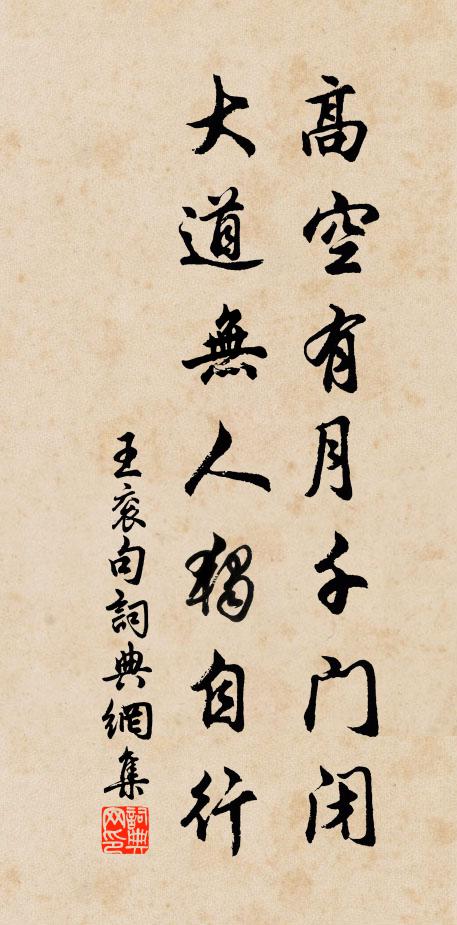 高空有月千门闭
大道無人獨自行
王衮句詞典網集
詞典
网印